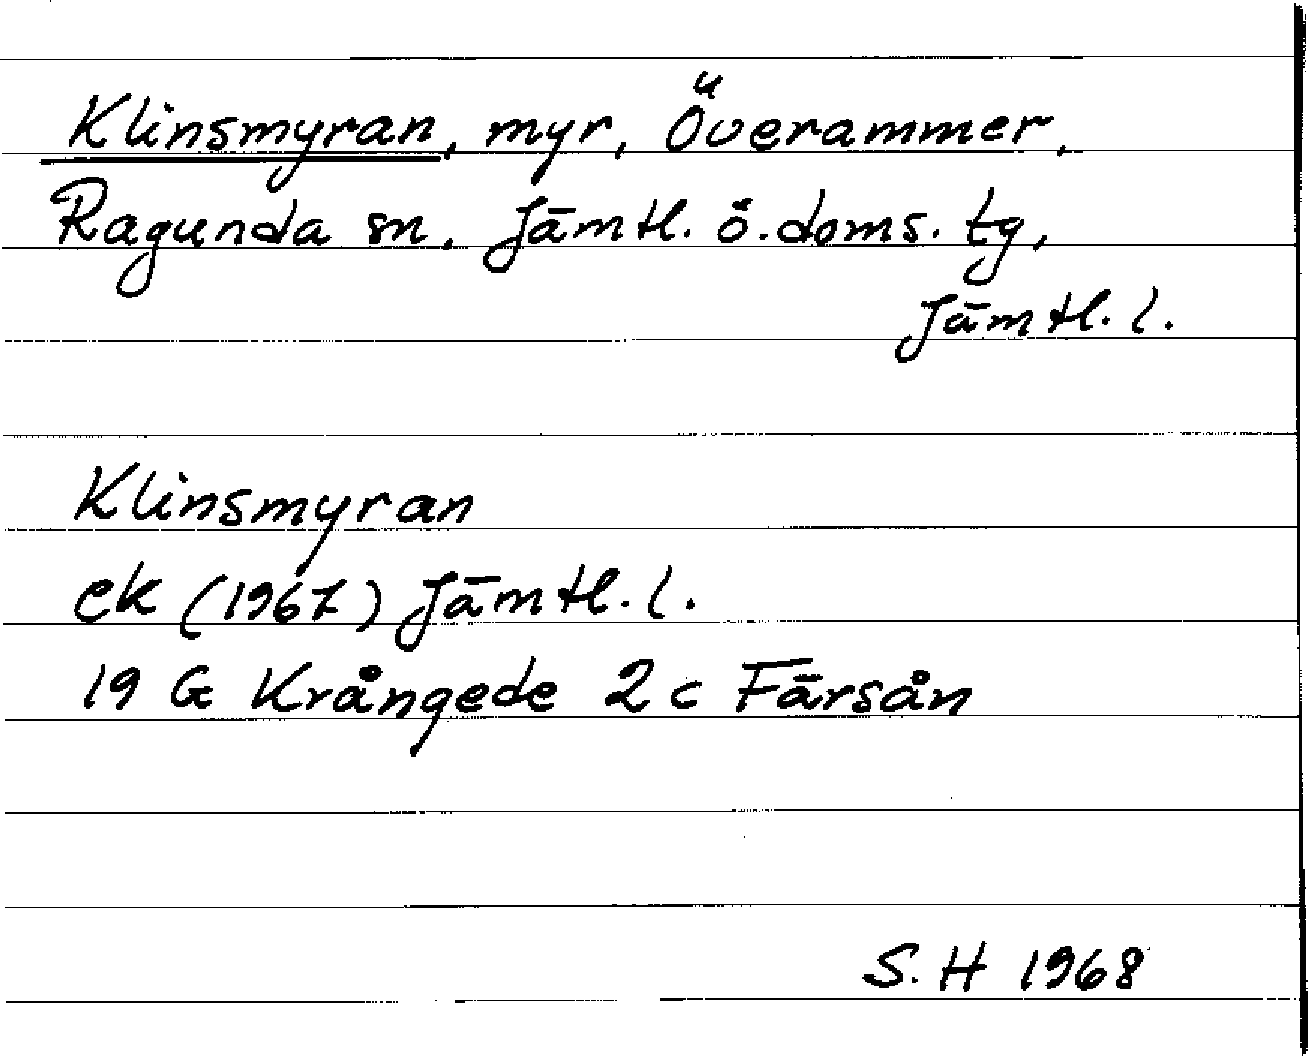 Klinsmyran, myr, Överammer,
Ragunda sn. Jämtl. ö. doms. tg,
Jämtl. l.
Klinsmyran
ek (1967) Jämtl. l.
19 G Krångede 2 c Färsån
S. H 1968